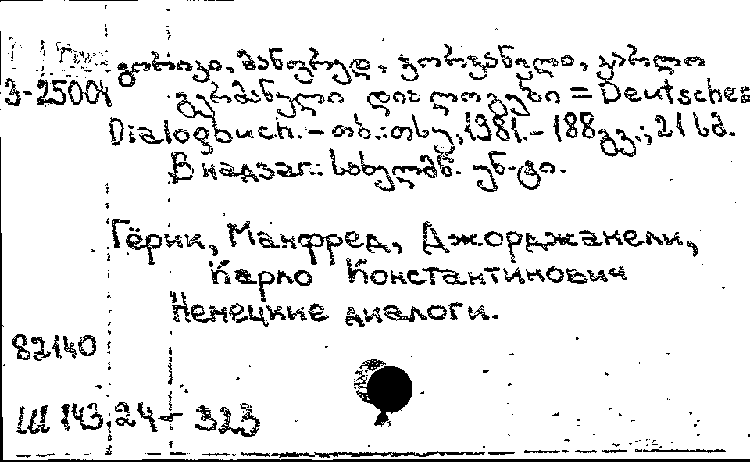 გორიკი, მანფრედ, ჯორჯანელი, კარლო
З-25004 გერმანული დიალოგები = Deutsches
Dialogbuch. – თბ.: თსუ, 1981. – 188 გვ.; 21 სმ.
В надзаг.: სახელმწ. უნ-ტი.
Гёрик, Манфред, Джорджанели,
Карло Константинович
Немецкие диалоги.
82140
Ш 143.24 – 323